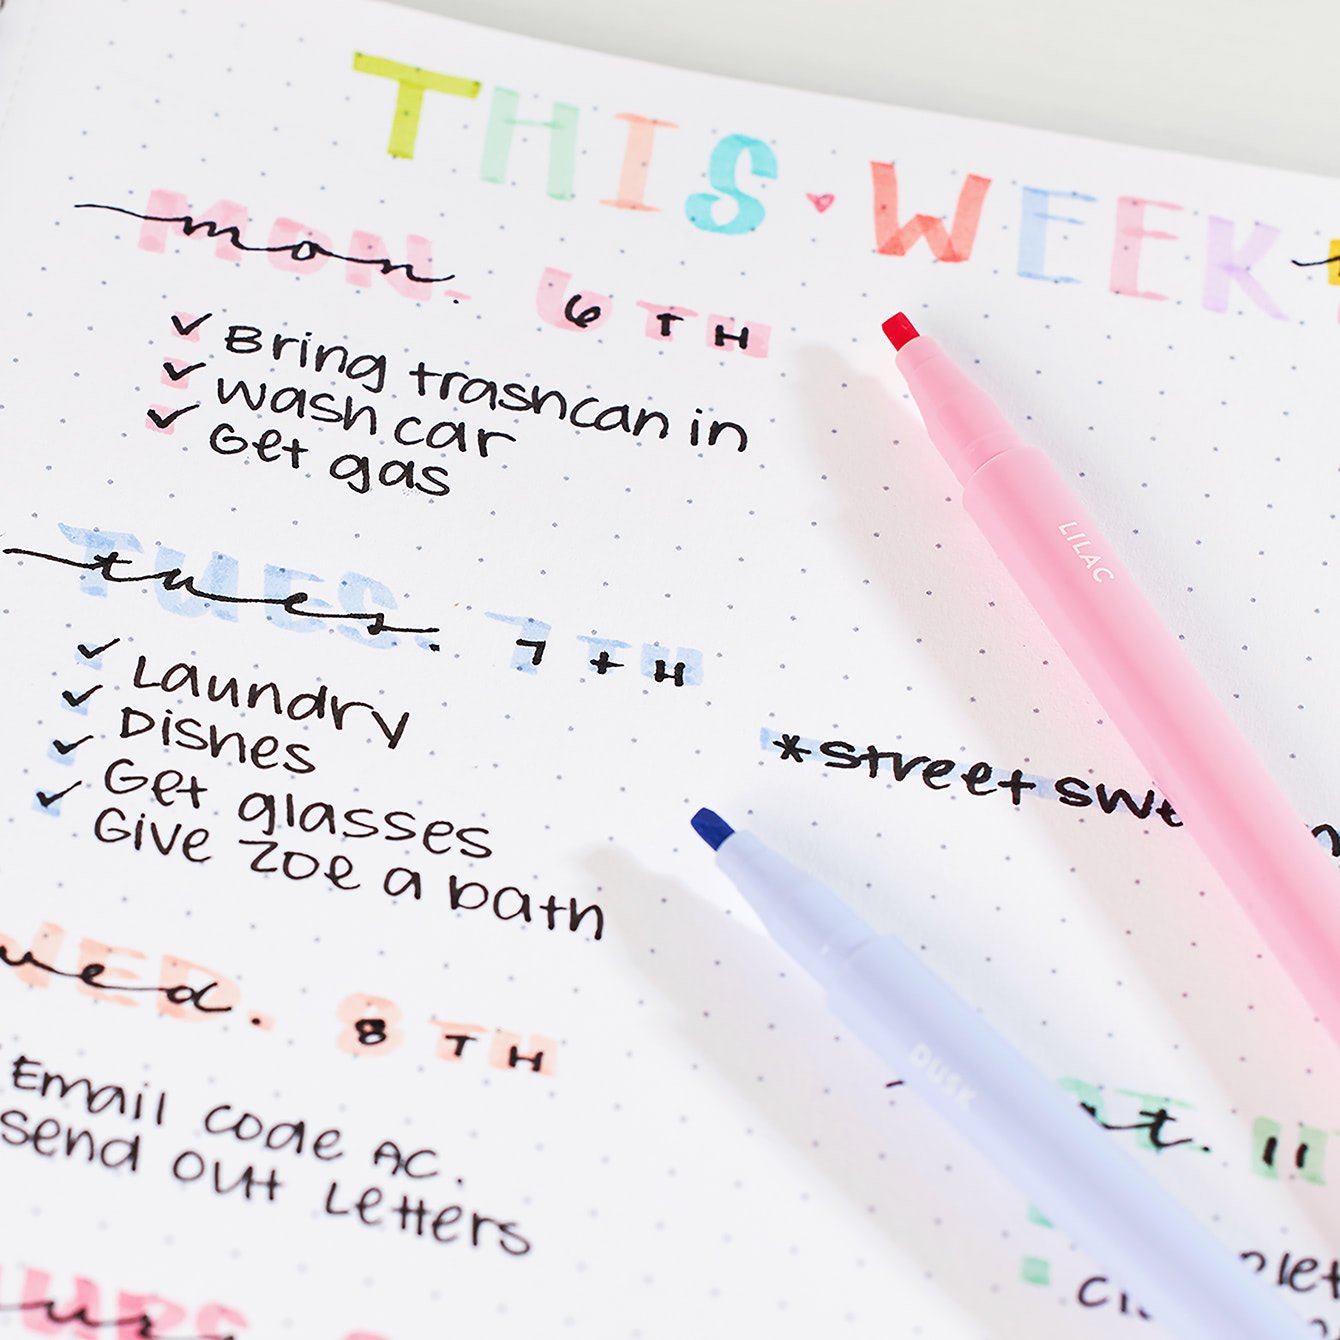 THIS WEEK
mon. 6TH
Bring trashcan in
wash car
Get gas
tues. 7TH
Laundry
Dishes
Get glasses
Give Zoe a bath
*street
wed. 8TH
Email code AC.
send out letters
11
LILAC
DUSK